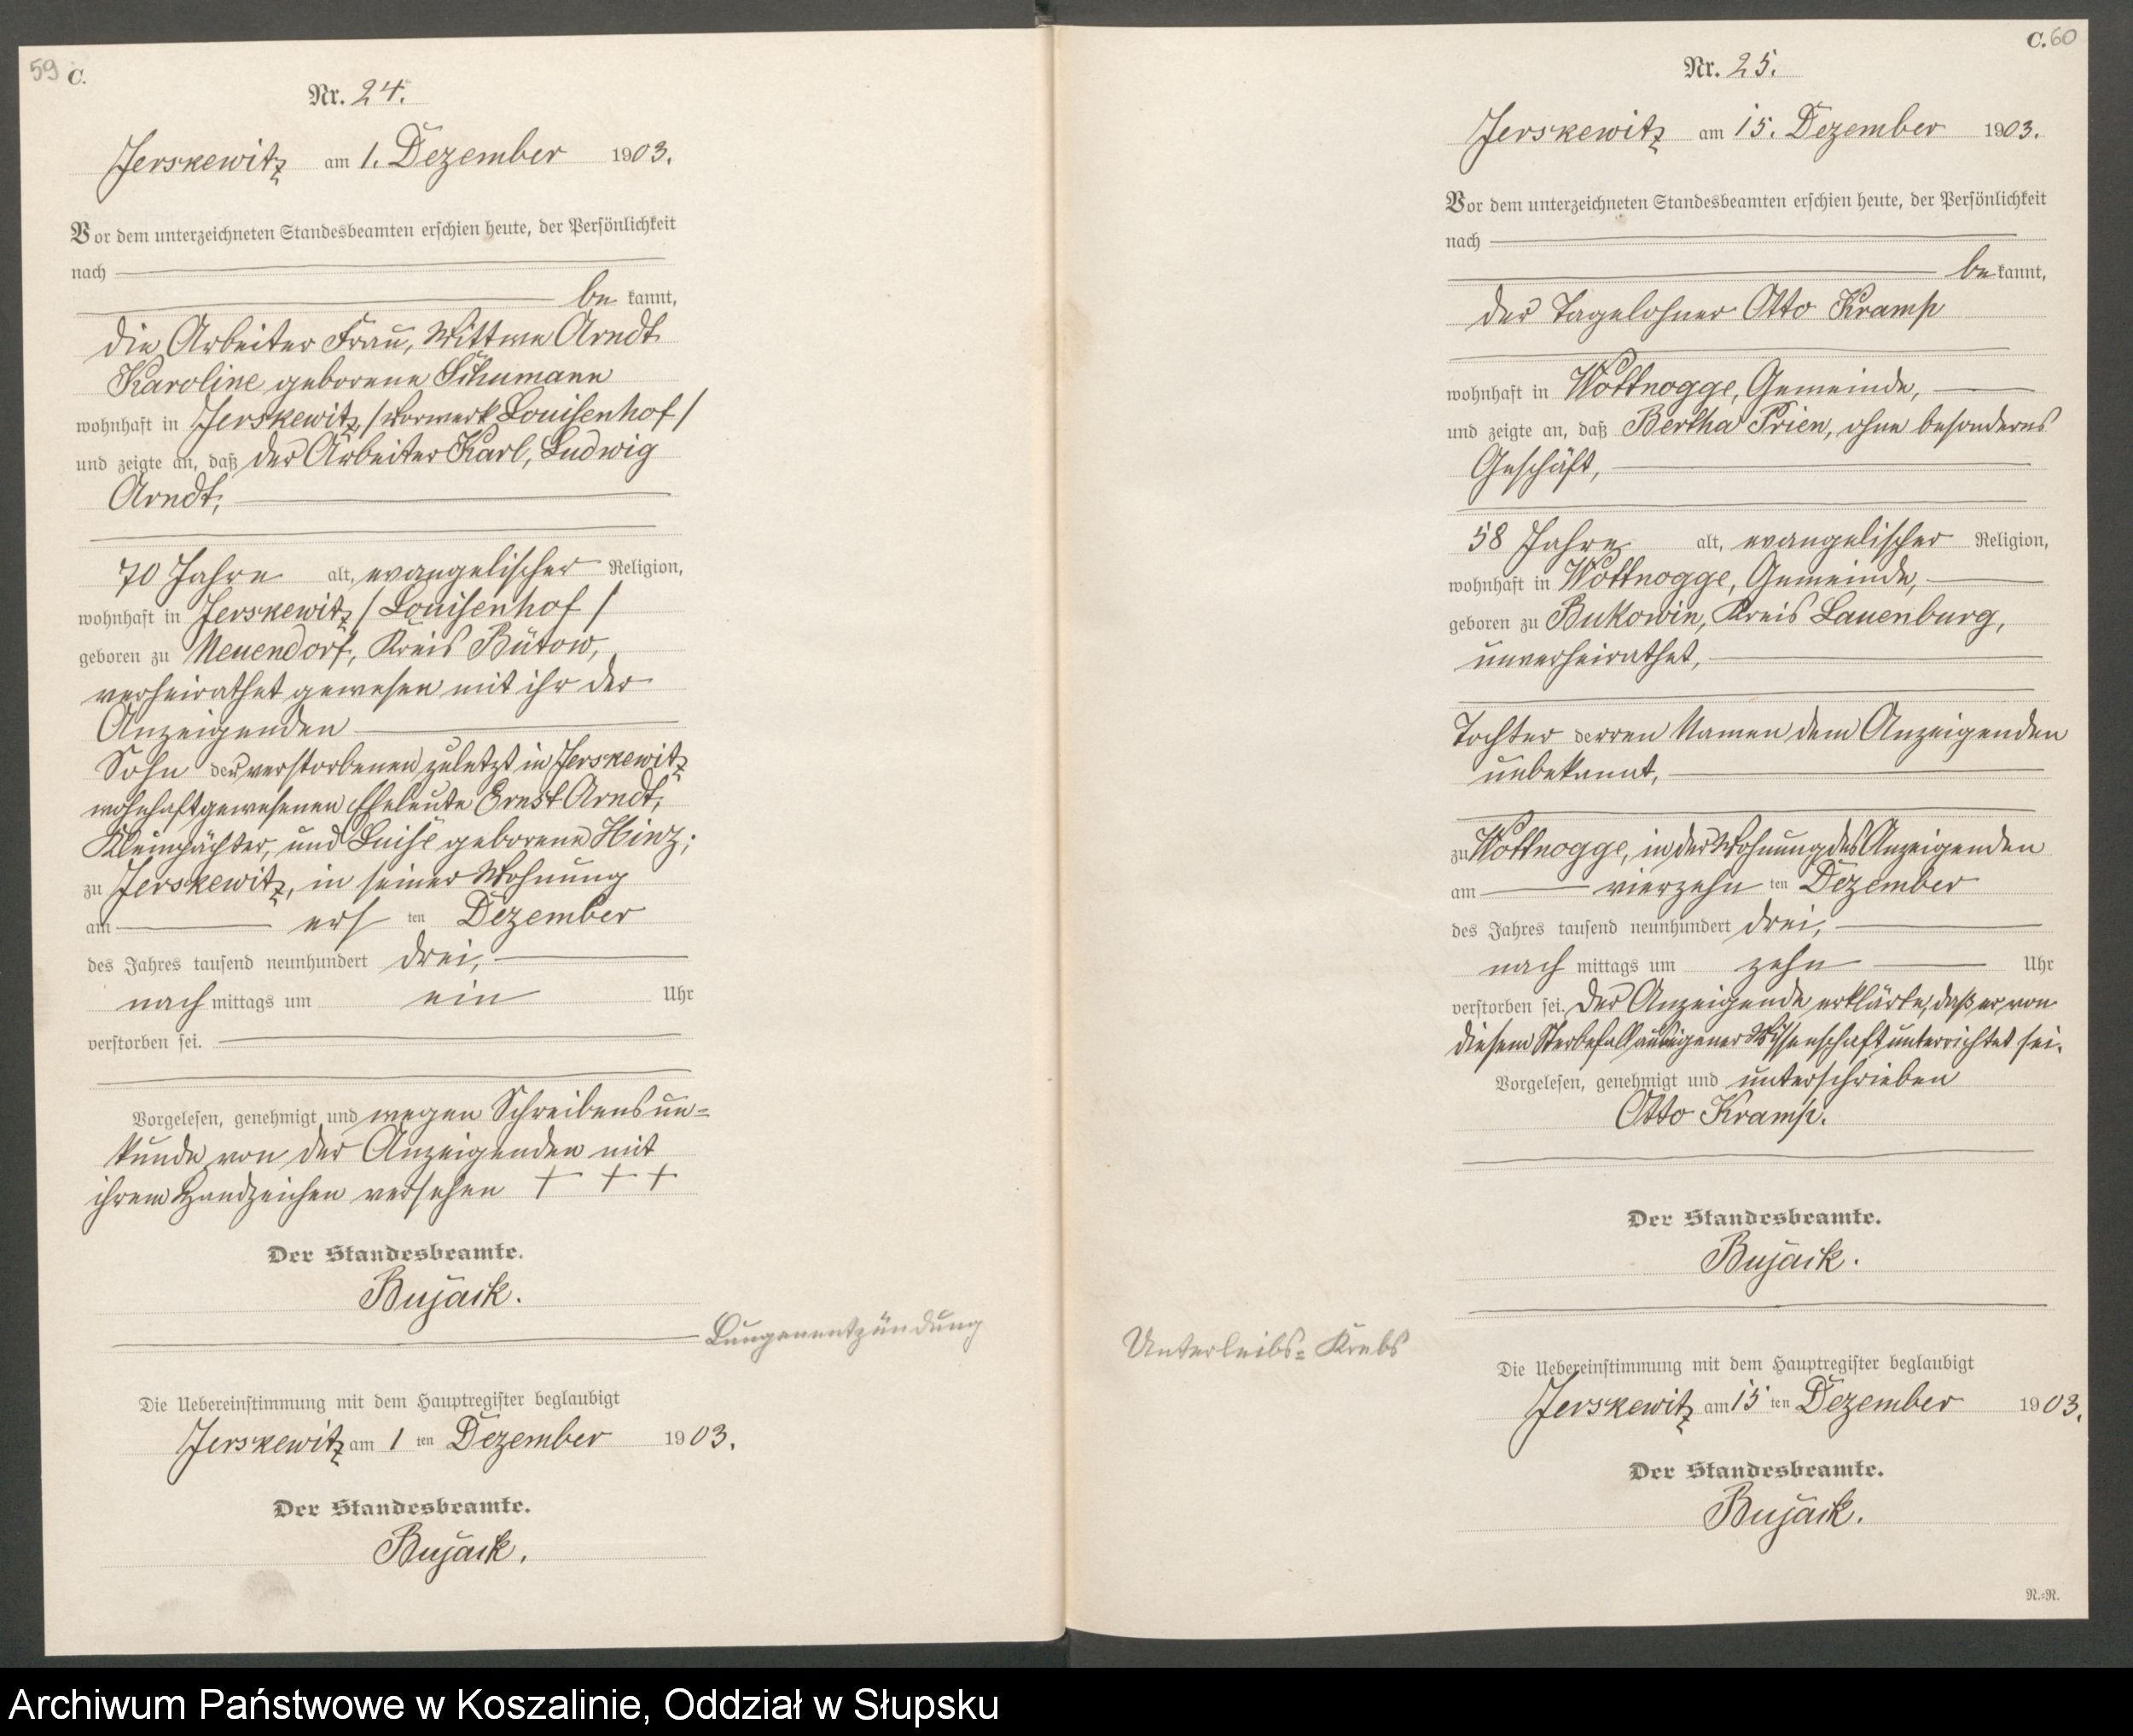 59 C.
Nr. 24.
Jerskewitz am 1. Dezember 1903.
Vor dem unterzeichneten Standesbeamten erschien heute, der Persönlichkeit
nach
be kannt,
die Arbeiter Frau, Wittwe Arndt
Karoline geborene Schumann
wohnhaft in Jerskewitz, / Vorwerk Louisenhof /
und zeigte an, daß der Arbeiter Karl, Ludwig
Arndt,
70 Jahre alt, evangelischer Religion,
wohnhaft in Jerskewitz / Louisenhof /
geboren zu Neuendorf, Kreis Bütow,
verheirathet gewesen mit ihr der
Anzeigenden
Sohn der verstorbenen zuletzt in Jerskewitz
wohnhaftgewesenen Eheleute Ernst Arndt,
Kleinpächter, und Luise geborene Hinz;
zu Jerskewitz, in seiner Wohnung
am ers ten Dezember
des Jahres tausend neunhundert drei,
nach mittags um ein Uhr
verstorben sei.
Vorgelesen, genehmigt und wegen Schreibensun=
kunde von der Anzeigenden mit
ihrem Handzeichen versehen + + +
Der Standesbeamte.
Bujack.
Lungenentzündung
Die Uebereinstimmung mit dem Hauptregister beglaubigt
Jerskewitz am 1 ten Dezember 1903.
Der Standesbeamte.
Bujack.
C. 60
Nr. 25.
Jerskewitz am 15. Dezember 1903.
Vor dem unterzeichneten Standesbeamten erschien heute, der Persönlichkeit
nach
be kannt,
der Tagelohner Otto Kramp
wohnhaft in Wottnogge, Gemeinde,
und zeigte an, daß Bertha Prien, ohne besonderes
Geschäft,
58 Jahre alt, evangelischer Religion,
wohnhaft in Wottnogge, Gemeinde,
geboren zu Bukowin, Kreis Lauenburg,
unverheirathet,
Tochter derren Namen dem Anzeigenden
unbekannt,
zu Wottnogge, in der Wohnung des Anzeigenden
am vierzehn ten Dezember
des Jahres tausend neunhundert drei,
nach mittags um zehn Uhr
verstorben sei. Der Anzeigende erklärte, daß er von
diesem Sterbefall aus eigener Wissenschaft unterrichtet sei.
Vorgelesen, genehmigt und unterschrieben
Otto Kramp.
Der Standesbeamte.
Bujack.
Unterleibs= Krebs
Die Uebereinstimmung mit dem Hauptregister beglaubigt
Jerskewitz am 15 ten Dezember 1903.
Der Standesbeamte.
Bujack.
R.=R.
Archiwum Państwowe w Koszalinie, Oddział w Słupsku